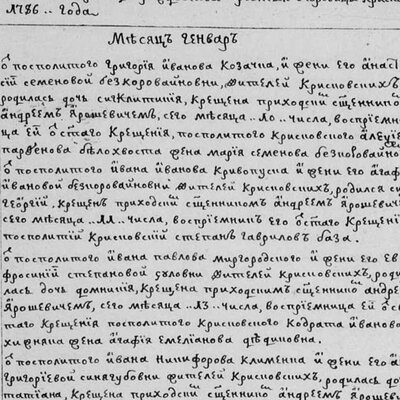 1786 .. года
Мѣсяцъ генваръ
ѿ посполитого григорія иванова козача, и жени его анаста
сіи семеновой безкоровайовни, жителей крисновскихъ
родилась дочь сигклитикія, крещена приходскі сщенникомъ
андреемъ ярошевичемъ, сего мѣсяца числа, воспріемни
ца ей ѿ стаго крещенія, посполитого крисновского алеѵіе
парѳенова бѣлохвоста жена марія семенова
ѿ посполитого ивана иванова кривопуска и жени его агафіи
ивановой жителей крисновскихъ, родился синъ
георгій, крещенъ приходскі сщенникомъ андреемъ ярошевичемъ
сего мѣсяца числа, воспріемникъ его ѿ стаго крещені
посполитій крисновскій степанъ гавриловъ база.
ѿ посполитого ивана павлова миргородского и жени его ев
фросиніи степановой жителей крисновскихъ, роди
лась дочь домникія, крещена приходскимъ сщенникомъ андре
ярошевичемъ, сего мѣсяца числа, воспріемница ей ѿ с
таго крещенія посполитого крисновского кодрата иваново
жена агафія емеліанова
ѿ посполитого ивана никифорова клименка и жени его
григоріевой синягубовни жителей крисновскихъ, родилась до
татіана, крещена приходскі сщенникомъ андреемъ яроше